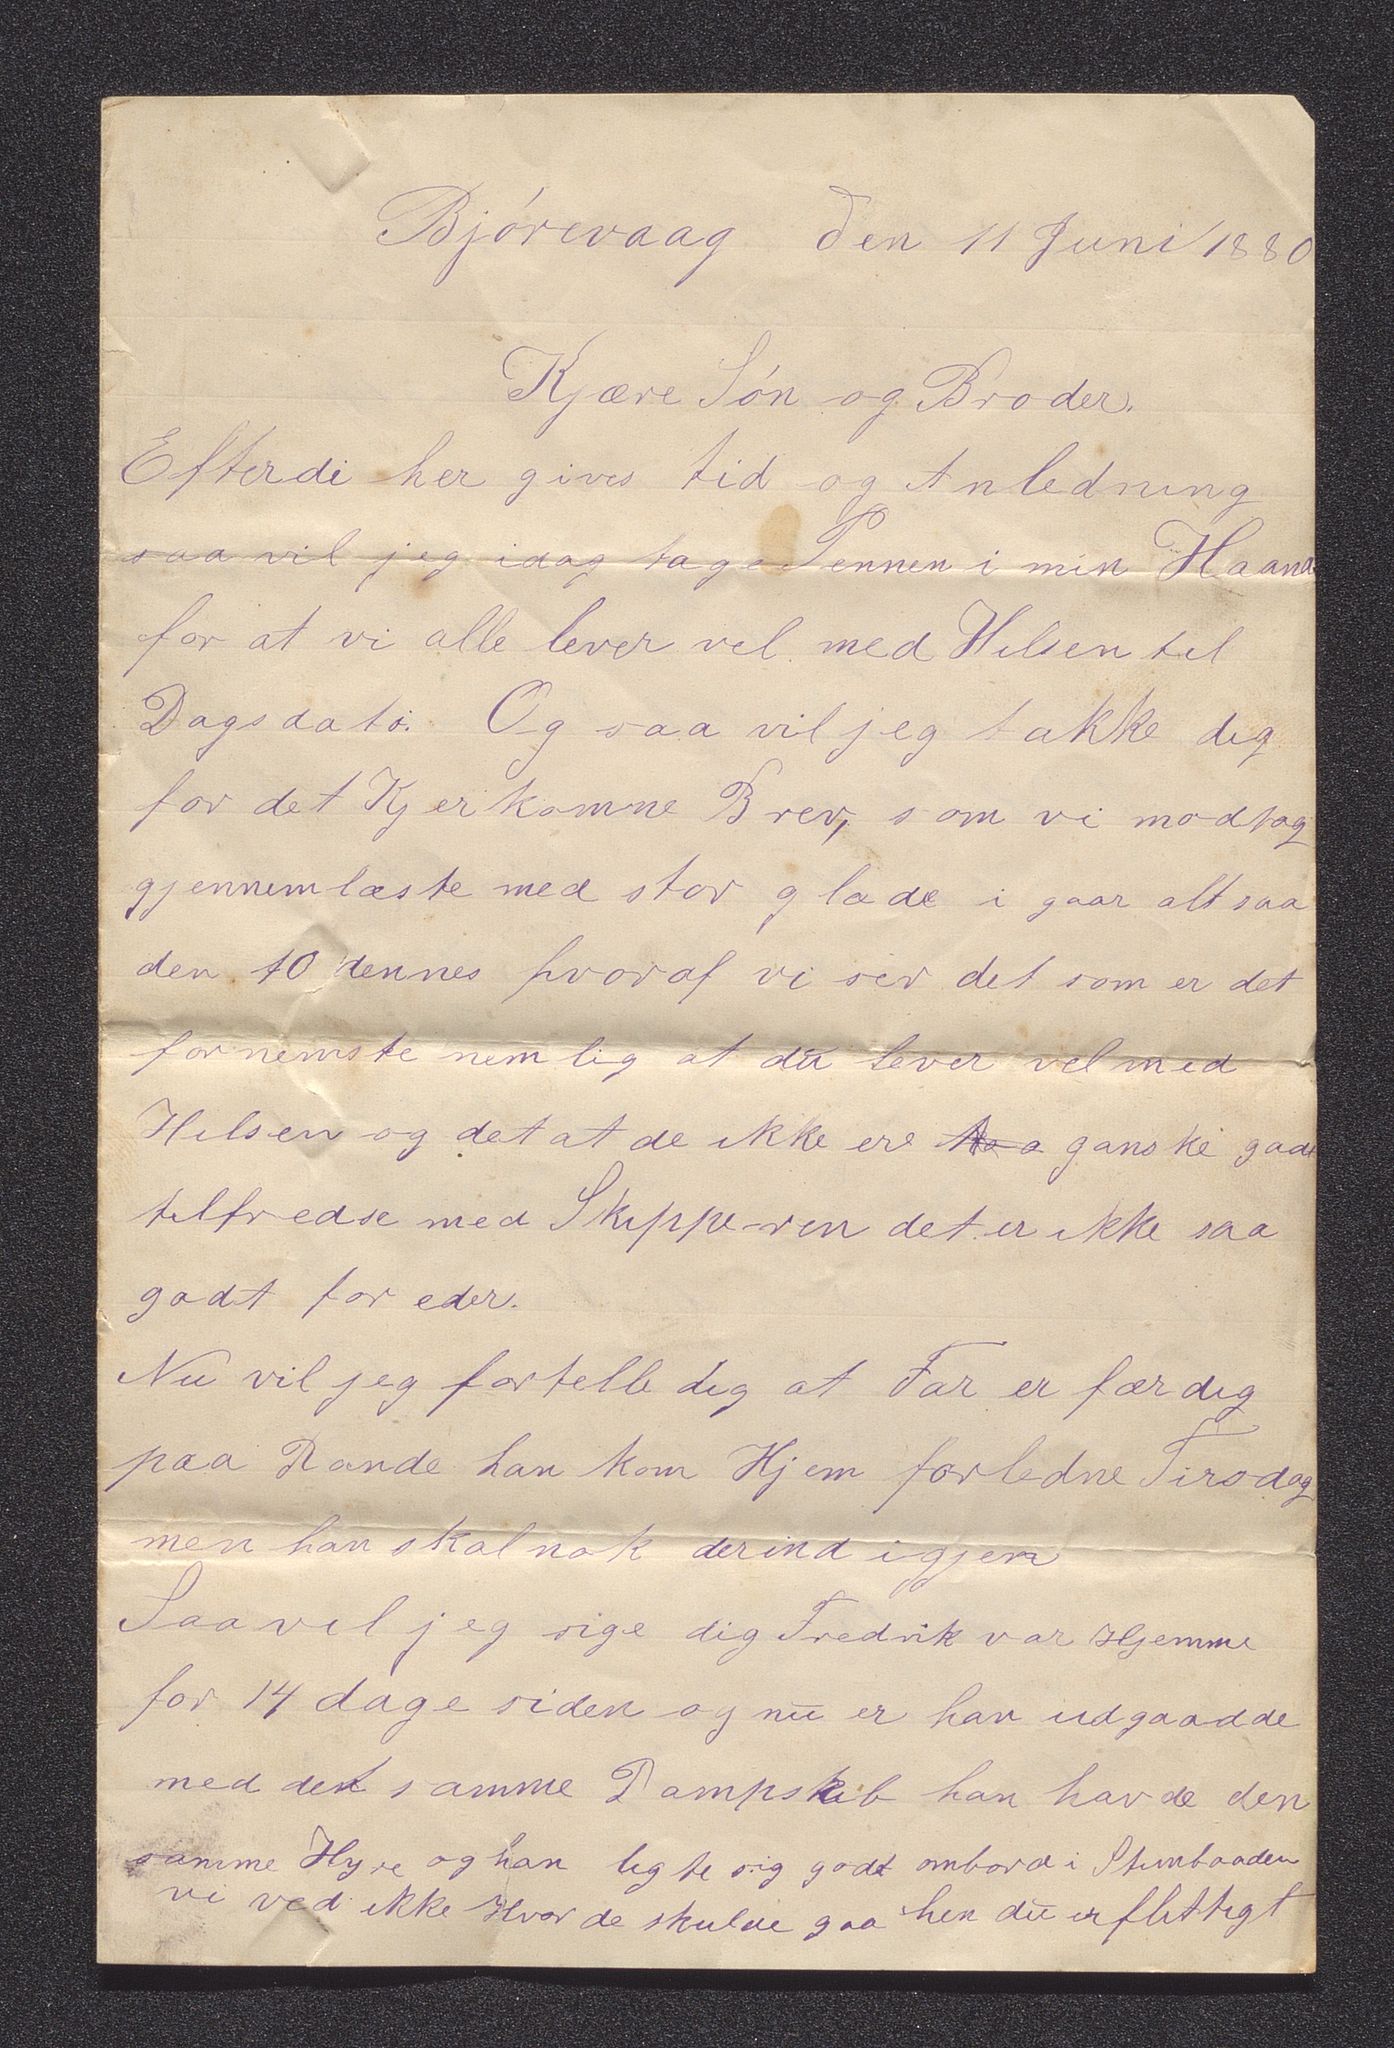 Bjórevaag den 11 Juni 1880
Kjære Són og Broder.
Efterdi her gives tid og Anledning
saa vil jeg idag tage Pennen i min Haand
for at vi alle lever vel med Hilsen til
Dagsdato. Og saa vil jeg takke dig
for det Kjerkomne Brev, som vi modtog
gjennemlæste med stor glæde i gaar altsaa
den 10 dennes hvoraf vi sér det som er det
fornemste nemlig at du lever vel med
Hilsen og det at de ikke ere ganske godt
tilfredse med Skipperen det er ikke saa
godt for eder.
Nu vil jeg fortelle dig at Far er færdig
paa Rande han kom Hjem forledne Tirsdag
men han skal nok derind igjen
Saa vil jeg sige dig Fredrik var Hjemme
for 14 dage siden og nu er han udgaadde
med det samme Dampskib han havde den
samme Hyre og han ligte sig godt ombord i Stimbaaden
vi ved ikke Hvor de skulde gaa hen du er flittigt